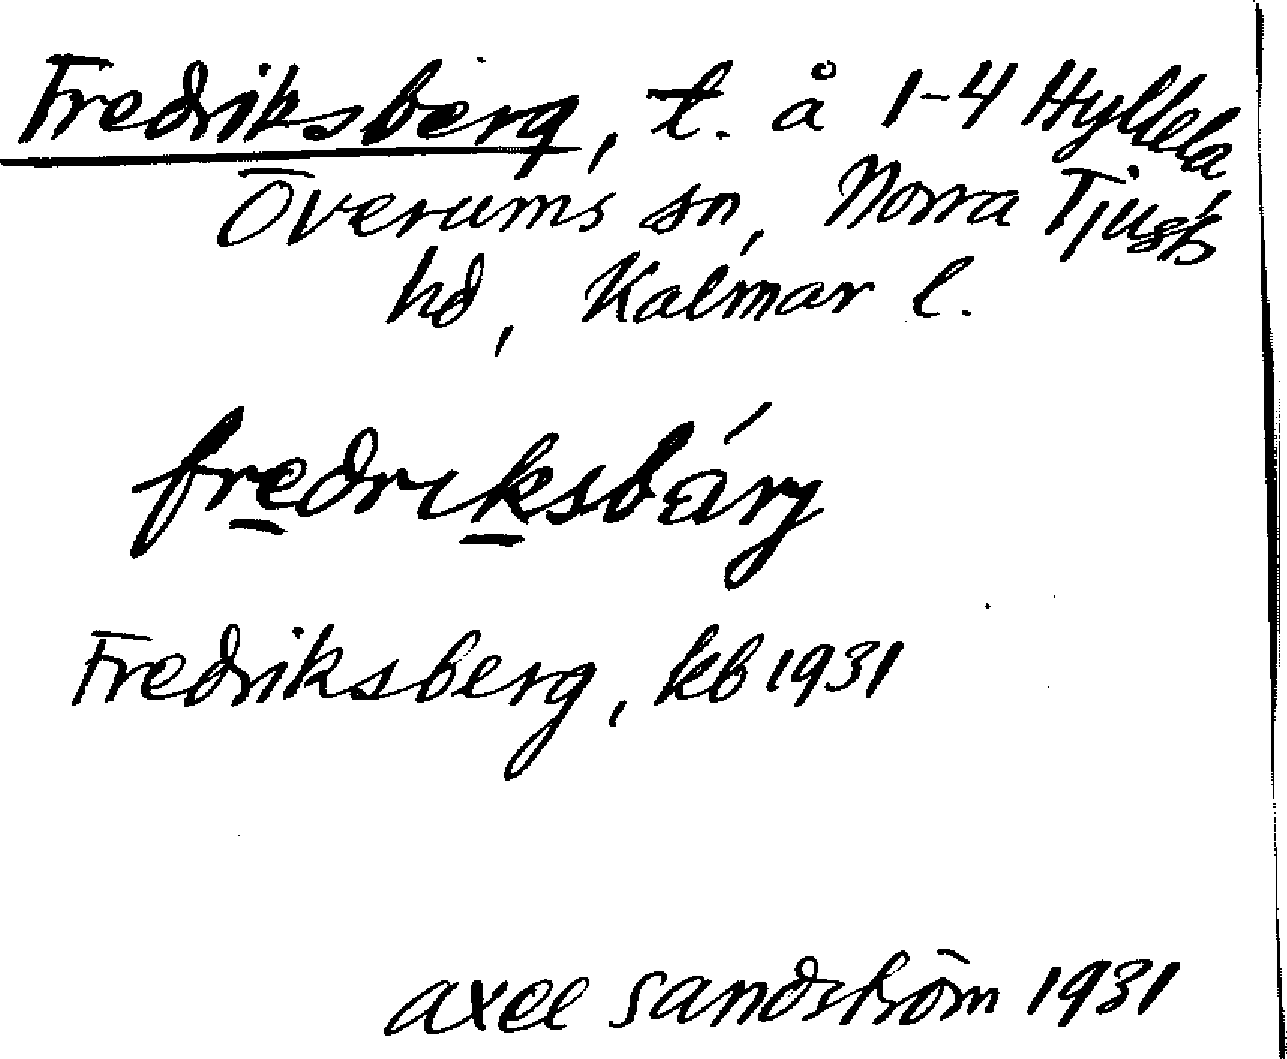 Fredriksberg, t. å 1-4 Hyllela
Överums sn, Norra Tjusts
hd, Kalmar l.
fredriksbárj
Fredriksberg, kb 1931
axel sandström 1931